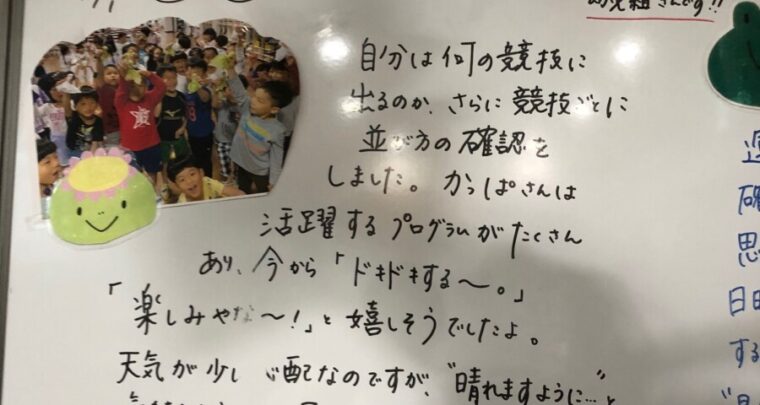 自分は何の競技に
出るのか、さらに競技ごとに
並び方の確認を
しました。かっぱさんは
活躍するプログラムがたくさん
あり、今から「ドキドキする〜。」
「楽しみやな〜!」と嬉しそうでしたよ。
天気が少し心配なのですが、"晴れますように…"と
さんです!!
確
思
日
する